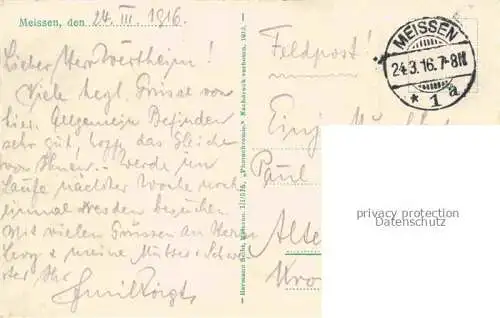 Meissen, den 24. III. 1916.
Lieber Herr Wertheim!
Viele hegl. Grüsse von
hier. Allgemein Befinden
sehr gut, hoffe das Gleiche
von Ihnen. - werde im
Laufe nächster Woche noch
einmal Dresden besuchen
Mit vielen Grüssen an Herrn
Levy & meine Mutter & Schwe
ster Ihr
Emil Voigt
Hermann 1/1/575, „Photochromie.“ Nachdruck verboten, 1912.
Feldpost!
MEISSEN
24.3.16.7-8N
* 1 a
Einj.
Paul
Alte
Kro
privacy protection
Datenschutz